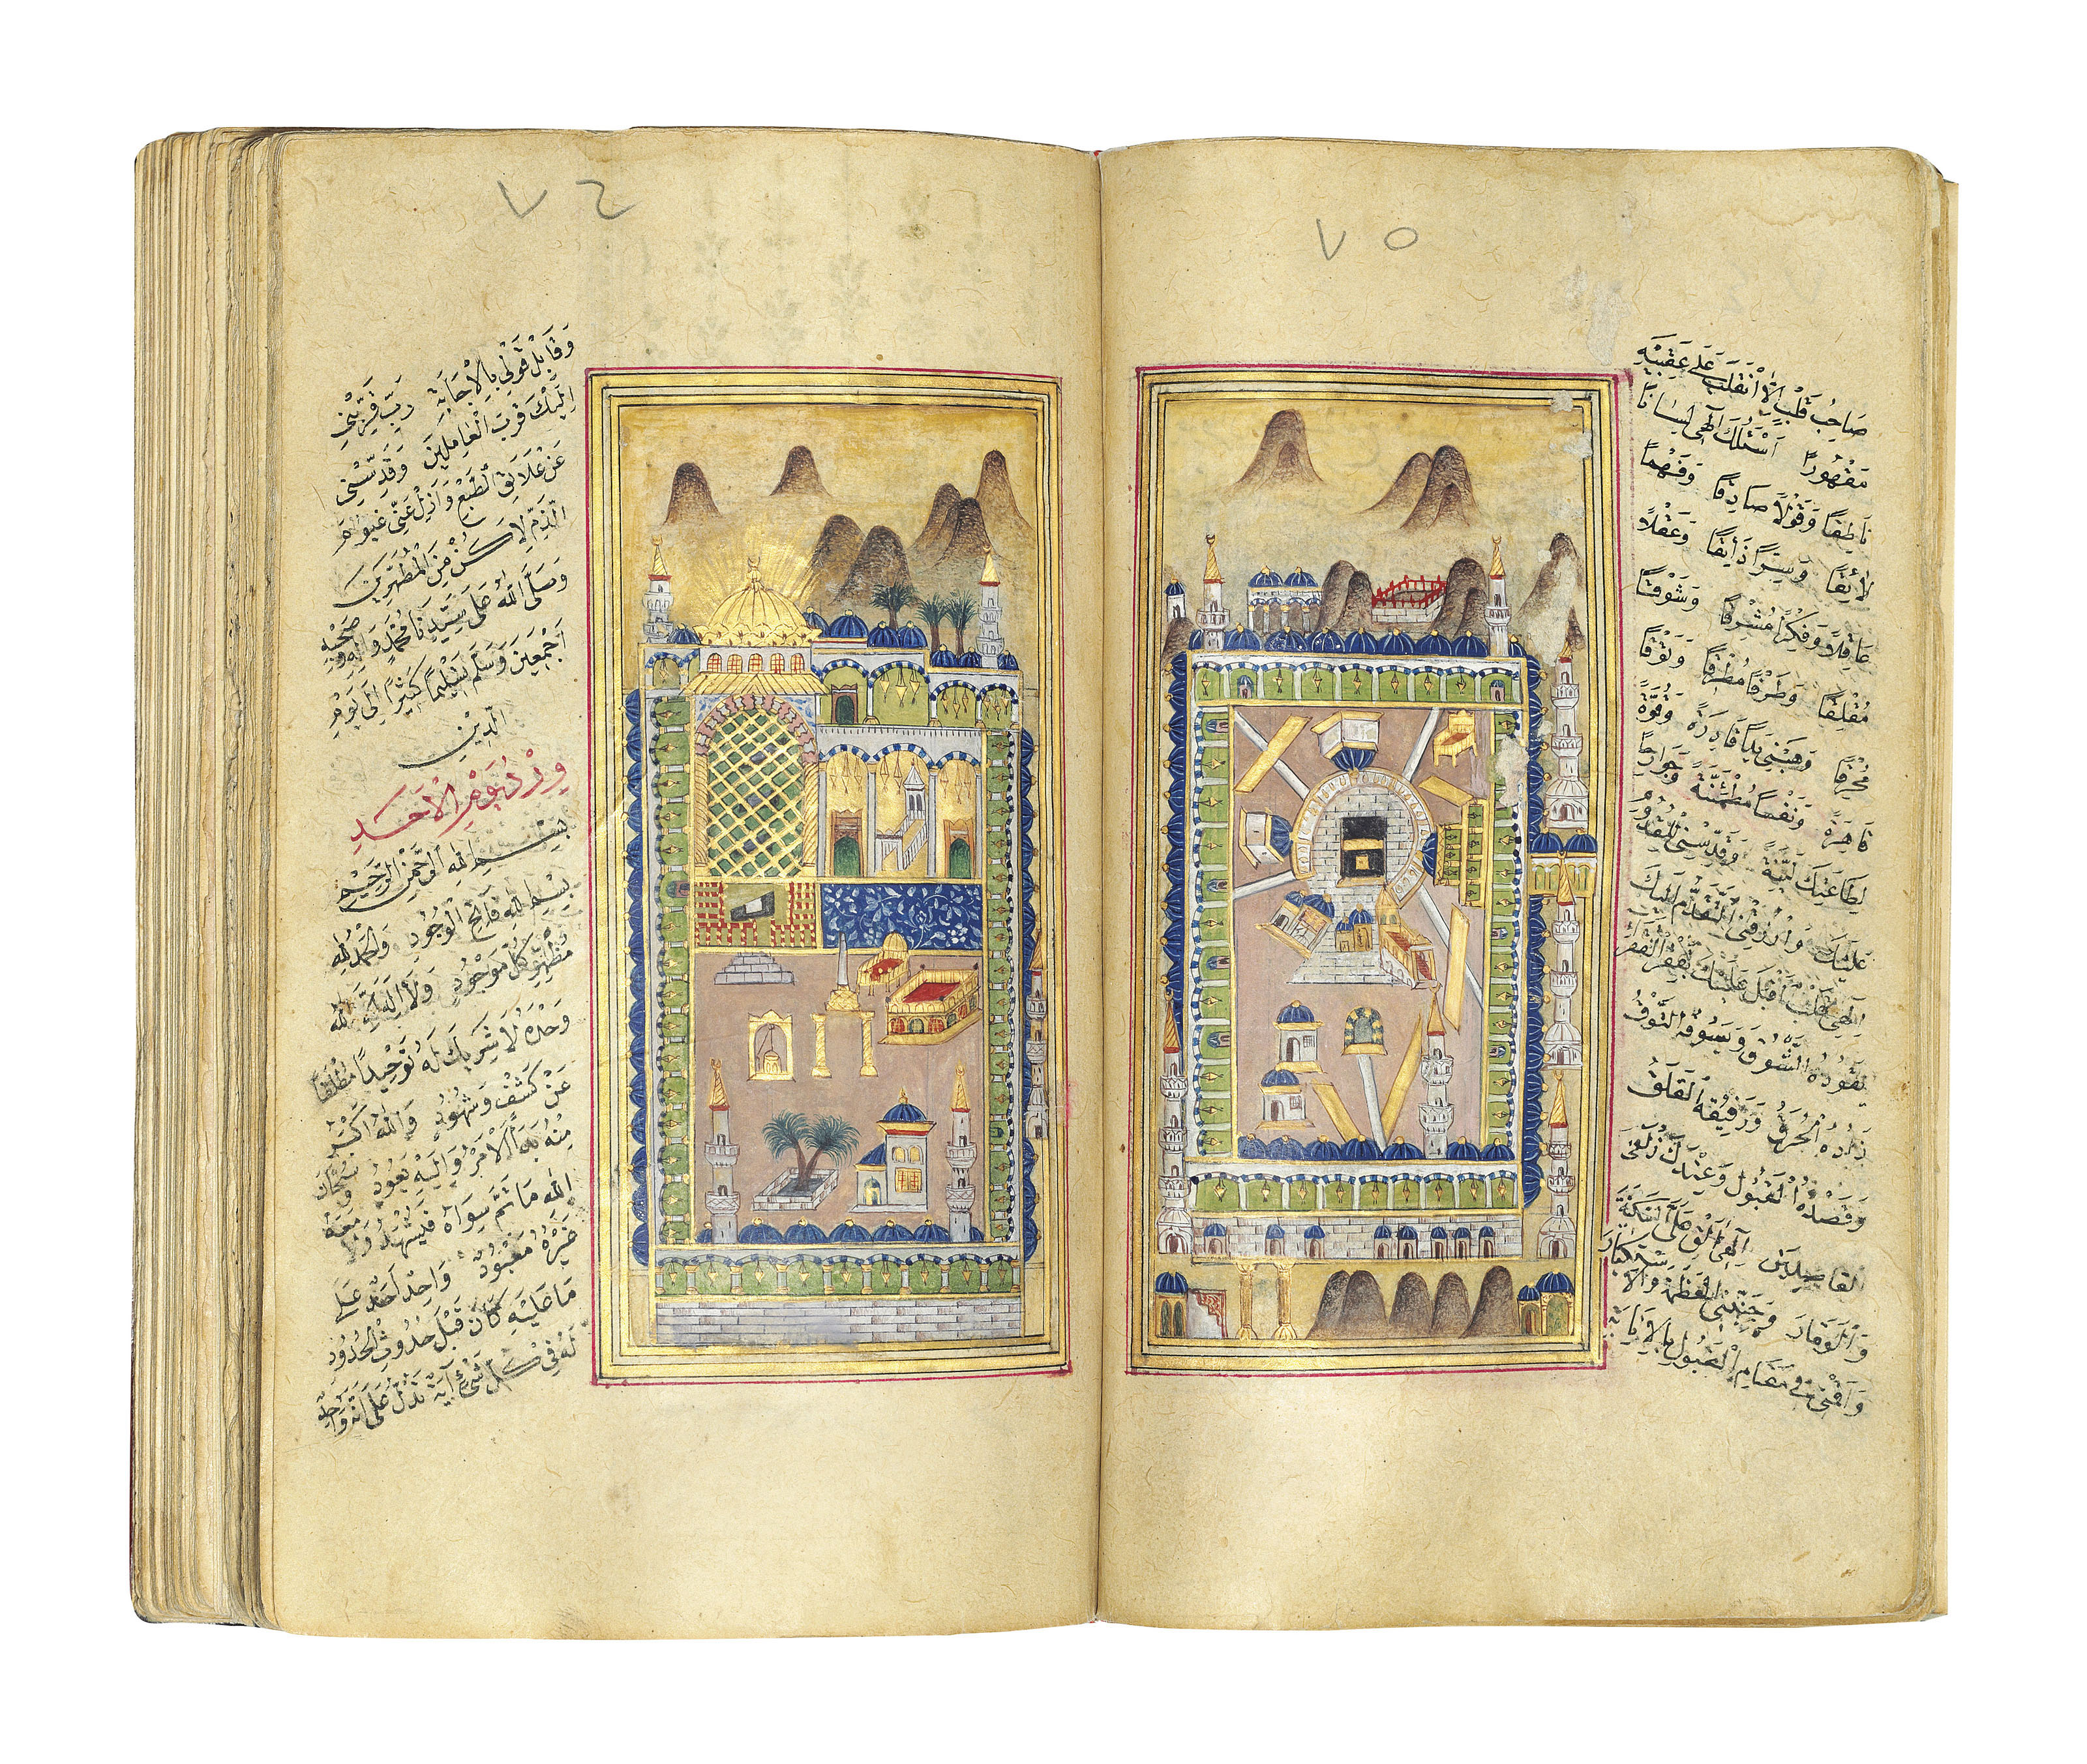 ٧٥
صَاحِبِ قَلْبٍ اِلَّا اَنْقَلَبَ عَلٰى عَقِبَيْهِ
مَقْهُورًا اَسْئَلُكَ اِلٰهِى لِسَانًا
نَاطِقًا وَقَوْلًا صَادِقًا وَفَهْمًا
لَائِقًا وَسِرًّا ذَائِقًا وَعَقْلًا
عَاقِلًا وَفِكْرًا مُشْرِقًا وَشَوْقًا
مُقْلِقًا وَطَرْفًا مُطْرِقًا وَتَوْقًا
مُحْرِقًا وَهَبْنِى يَدًا قَادِرَةً وَقُوَّةً
قَاهِرَةً وَنَفْسًا مُطْمَئِنَّةً وَجَوَارِحًا
لِطَاعَتِكَ لَيِّنَةً وَقَدِّسْنِى لِلْقُدُومِ
عَلَيْكَ وَارْزُقْنِى التَّقَدُّمَ اِلَيْكَ
اِلٰهِى عَلَيْكَ بِفَقْرِ الْفَقْرِ
يَقُودُهُ الشَّوْقُ وَيَسُوقُهُ التَّوْقُ
زَادُهُ الْحُرَقُ وَرَفِيقُهُ الْقَلَقُ
وَقَصْدُهُ الْقَبُولُ وَعِنْدَكَ زُلْفَى
القَاصِدِينَ اِلٰهِى اَلْقِ عَلَىَّ السَّكِينَةَ
وَالْوَقَارَ وَجَنِّبْنِى الْعَظَمَةَ وَالْاِسْتِكْبَارَ
وَاَقِمْنِى فِى مَقَامِ الْقَبُولِ بِالْاِنَابَةِ
وَقَابِلْ قَوْلِى بِالْاِجَابَةِ رَبِّ قَرِّبْنِى
اِلَيْكَ قُرْبَ الْعَامِلِينَ وَقَدِّسْنِى
عَنْ عَلَائِقِ الطَّبْعِ وَاَزِلْ عَنِّى
الذَّمِّ لِاَكُنْ مِنَ الْمُطَهَّرِينَ
وَصَلَّى اللهُ عَلٰى سَيِّدِنَا مُحَمَّدٍ وَاٰلِهِ وَصَحْبِهِ
اَجْمَعِينَ وَسَلَّمَ تَسْلِيمًا كَثِيرًا اِلٰى يَوْمِ
الدِّينِ
وِرْدُ يَوْمِ الْاَحَدِ
بِسْمِ اللهِ الرَّحْمٰنِ الرَّحِيمِ
بِسْمِ اللهِ فَاتِحِ الْوُجُودِ وَالْحَمْدُ لِلّٰهِ
مُظْهِرِ كُلِّ مَوْجُودٍ وَلَا اِلٰهَ اِلَّا اللهُ
وَحْدَهُ لَا شَرِيكَ لَهُ تَوْحِيدًا مُطْلَقًا
عَنْ كَشْفٍ وَشُهُودٍ وَاللهُ اَكْبَرُ
مِنْهُ بَدَأَ الْاَمْرُ وَاِلَيْهِ يَعُودُ وَسُبْحَانَ
اللهِ مَا ثَمَّ سِوَاهُ فَيُشْهَدُ وَلَا مَعَهُ
غَيْرُهُ مَعْبُودٌ وَاحِدٌ اَحَدٌ عَلٰى
مَا عَلَيْهِ كَانَ قَبْلَ حُدُوثِ الْحُدُودِ
لَهُ فِى كُلِّ شَىْءٍ اٰيَةٌ تَدُلُّ عَلٰى اَنَّهُ وَاحِدٌ